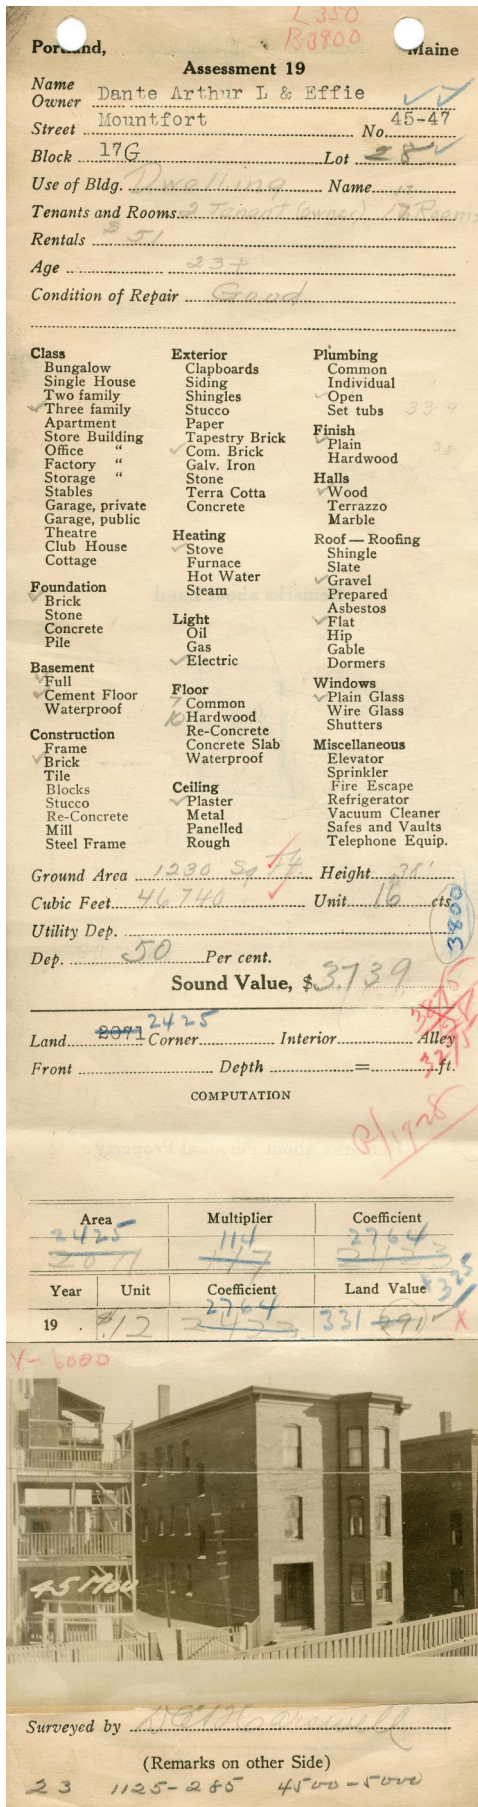 L 350
B 3800
Portland, Maine
Assessment 19
Name
Owner Dante Arthur L & Effie
Street Mountfort No. 45-47
Block 17G Lot 28
Use of Bldg. Dwelling Name
Tenants and Rooms 2 Tenant (owner) 17 Rooms
Rentals $51
Age 23+
Condition of Repair Good
Class
Bungalow
Single House
Two family
✓ Three family
Apartment
Store Building
Office "
Factory "
Storage "
Stables
Garage, private
Garage, public
Theatre
Club House
Cottage
Foundation
✓ Brick
Stone
Concrete
Pile
Basement
✓ Full
✓ Cement Floor
Waterproof
Construction
Frame
✓ Brick
Tile
Blocks
Stucco
Re-Concrete
Mill
Steel Frame
Exterior
Clapboards
Siding
Shingles
Stucco
Paper
Tapestry Brick
✓ Com. Brick
Galv. Iron
Stone
Terra Cotta
Concrete
Heating
✓ Stove
Furnace
Hot Water
Steam
Light
Oil
Gas
✓ Electric
Floor
7 Common
10 Hardwood
Re-Concrete
Concrete Slab
Waterproof
Ceiling
✓ Plaster
Metal
Panelled
Rough
Plumbing
Common
Individual
✓ Open
Set tubs
Finish
✓ Plain
Hardwood
Halls
✓ Wood
Terrazzo
Marble
Roof — Roofing
Shingle
Slate
✓ Gravel
Prepared
Asbestos
✓ Flat
Hip
Gable
Dormers
Windows
✓ Plain Glass
Wire Glass
Shutters
Miscellaneous
Elevator
Sprinkler
Fire Escape
Refrigerator
Vacuum Cleaner
Safes and Vaults
Telephone Equip.
Ground Area 1230 Sq Ft Height 38'
Cubic Feet 46740 Unit 16 cts.
3800
Utility Dep.
Dep. 50 Per cent.
Sound Value, $3739
3875
3275
Land 2071 2425 Corner Interior Alley
Front Depth = ft.
COMPUTATION
P/1928
Area Multiplier Coefficient
2425 114 2764
2071 117 2423
Year Unit Coefficient Land Value $325
2764
19 . $.12 2423 331 291 X
V-6000
45 Mou
Surveyed by
(Remarks on other Side)
23 1125-285 4500-5000